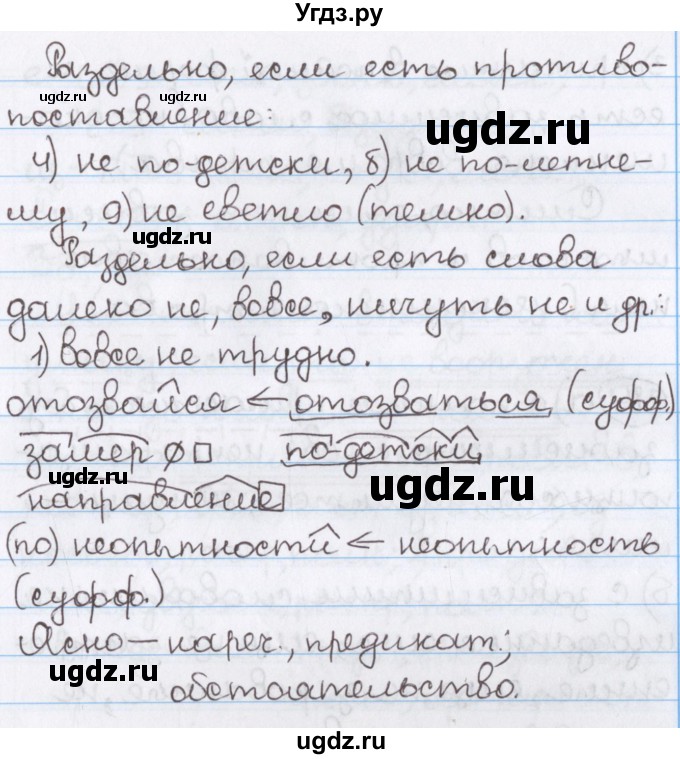 Угдз.ру
Раздельно, если есть противо-
ugdz.ru
поставление:
ugdz.ru
4) не по-детски, б) не по-летне-
му, 9) не светло (темно).
ugdz.ru
Раздельно, если есть слова
далеко не, вовсе, ничуть не и др.:
ugdz.ru
1) вовсе не трудно.
отозвайся ← отозваться (суфф.)
замер ∅ по-детски
ugdz.ru
ugdz.ru
направление
(по) неопытности ← неопытность
(суфф.)
ugdz.ru
Ясно – нареч., предикат.;
ugdz.ru
обстоятельство.
ugdz.ru